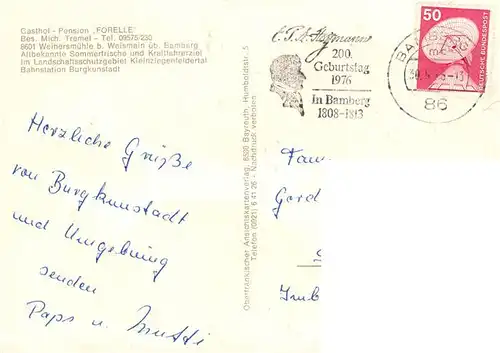 Gasthof - Pension „FORELLE"
Bes. Mich. Tremel - Tel. 09575/230
8601 Weihersmühle b. Weismain üb. Bamberg
Altbekannte Sommerfrische und Kraftfahrerziel
im Landschaftsschutzgebiet Kleinziegenfeldertal
Bahnstation Burgkunstadt
Herzliche Grüße
von Burgkunstadt
und Umgebung
senden
Paps u. Mutti
Oberfränkischer Ansichtskartenverlag, 8580 Bayreuth, Humboldtstr. 5
Telefon (0921) 6 41 26 - Nachdruck verboten
200.
Geburtstag
1976
in Bamberg
1808-1813
BAMBERG
86
50
DEUTSCHE BUNDESPOST
Fam
Gord
Imb